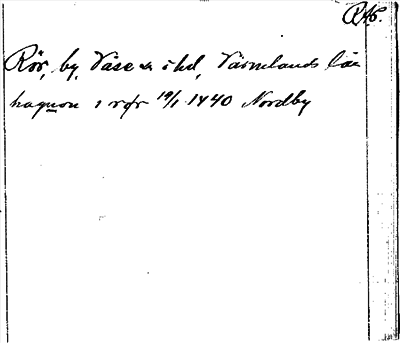 RAp.
Rör, by, Väse sn o hd, Värmlands län
haquon i rør 19/1 1440 Nordby